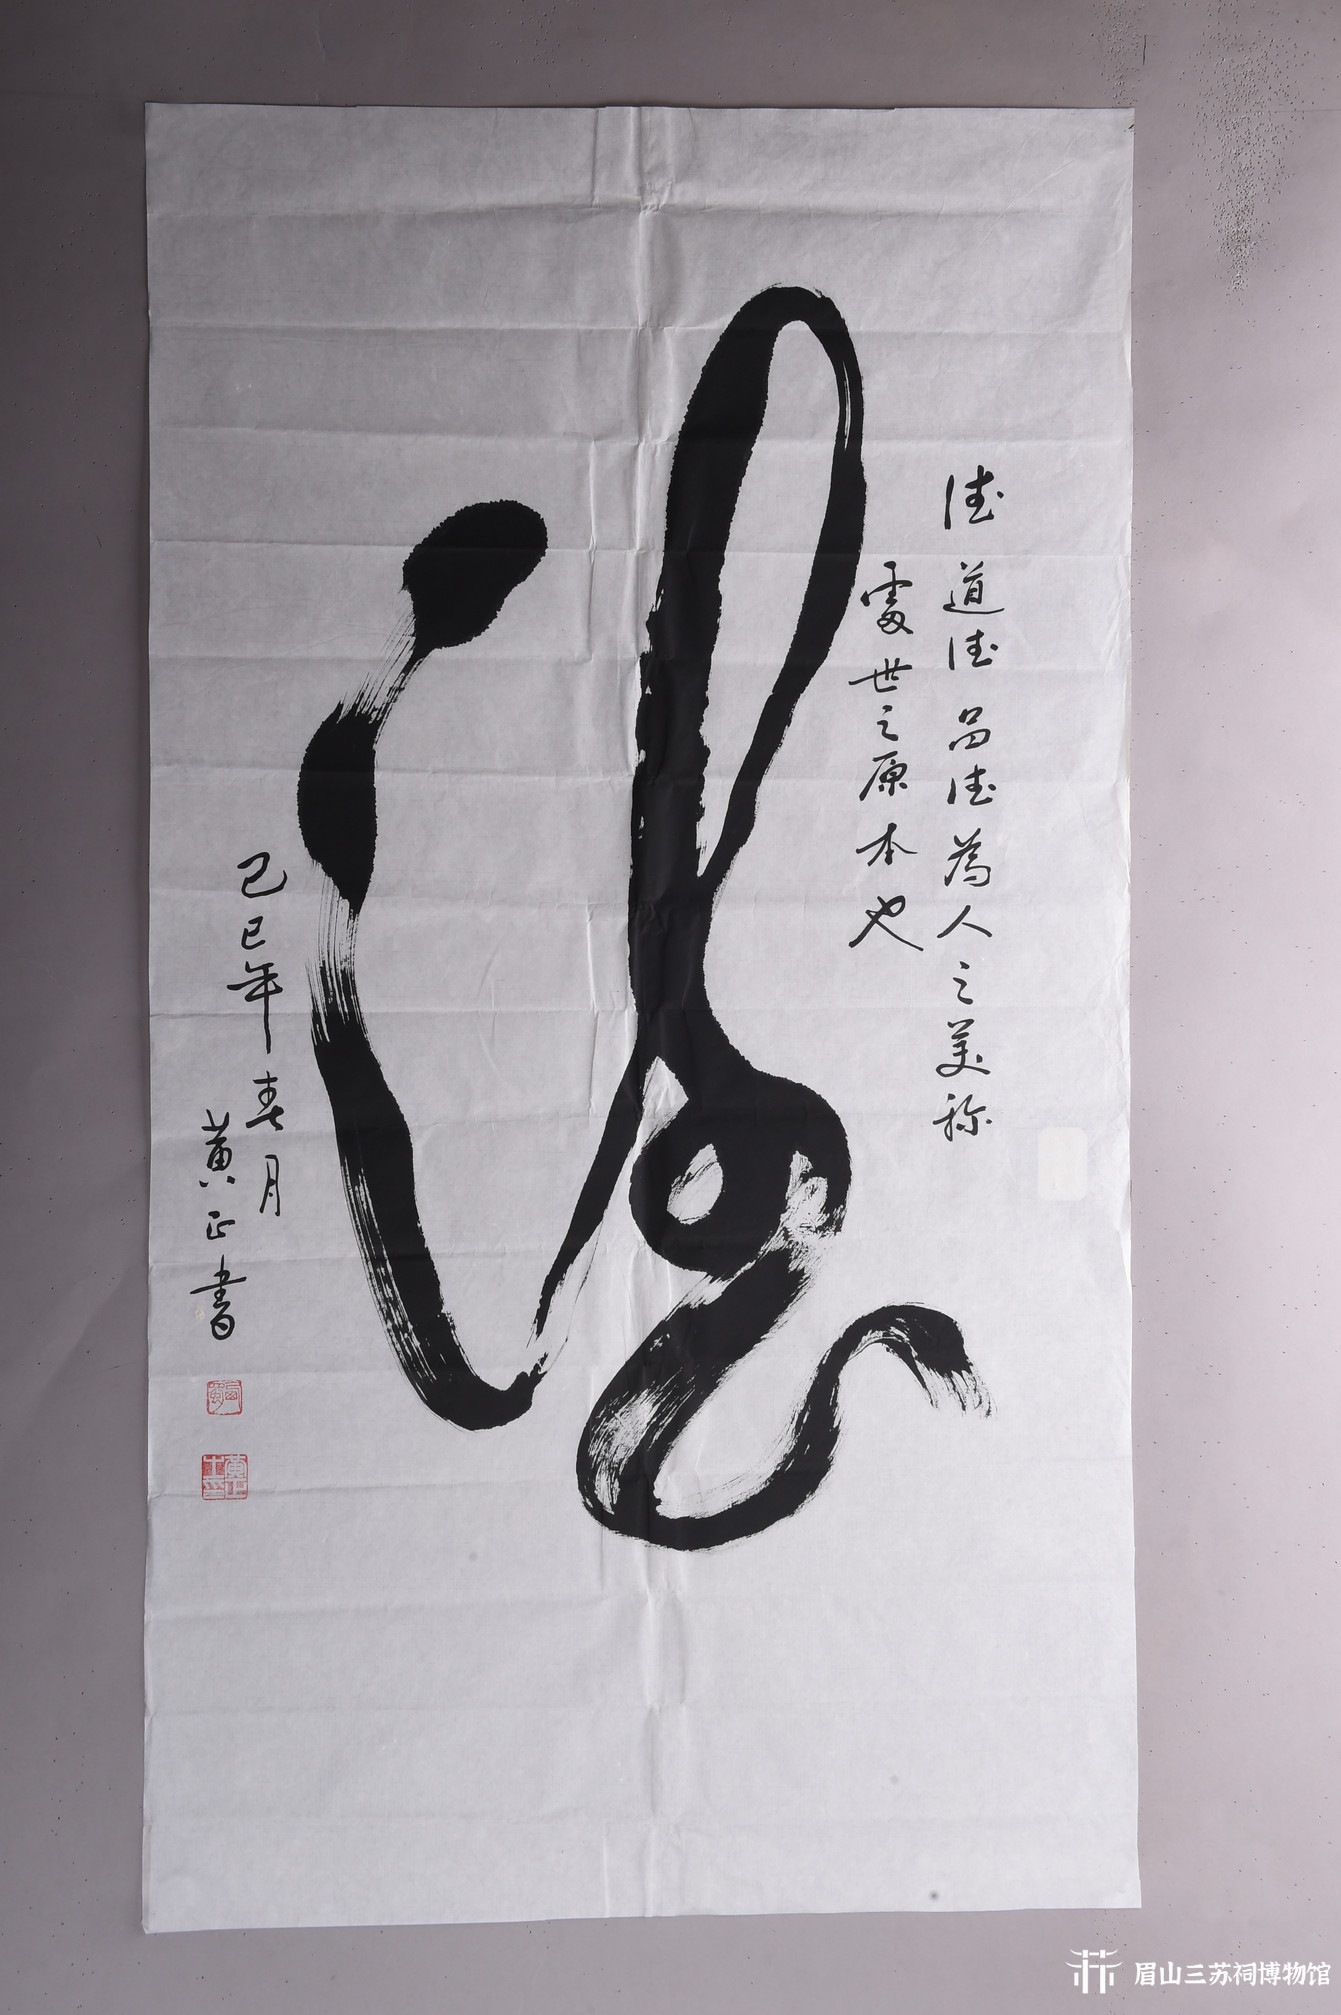 德
德道德品德為人之美称
處世之原本也
己巳年春月
黄正書
眉山三苏祠博物馆